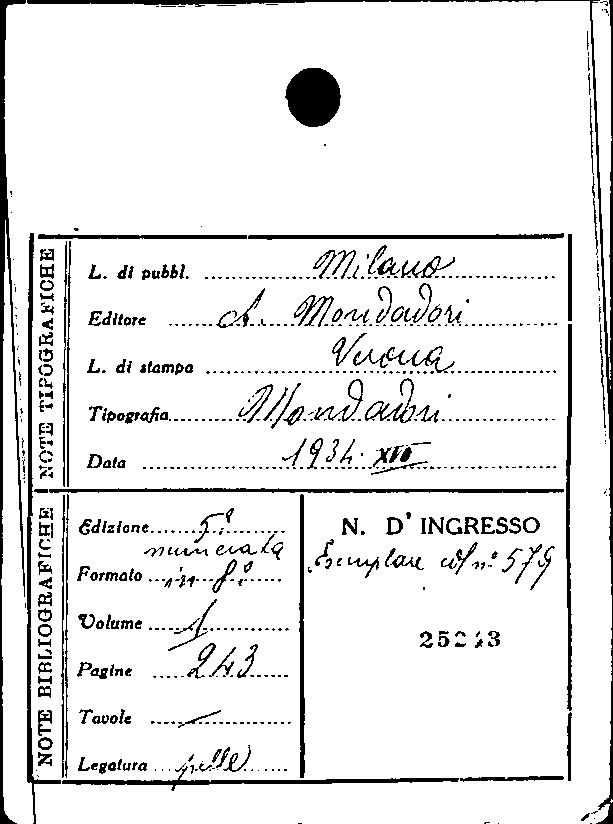 NOTE TIPOGRAFICHE
L. di pubbl. Milano
Editore A. Mondadori
L. di stampa Verona
Tipografia Mondadori
Data 1934. XII
NOTE BIBLIOGRAFICHE
Edizione 5ª
numerata
Formato in 8°
Volume 1
Pagine 243
Tavole —
Legatura pelle
N. D'INGRESSO
Esemplare col n° 579